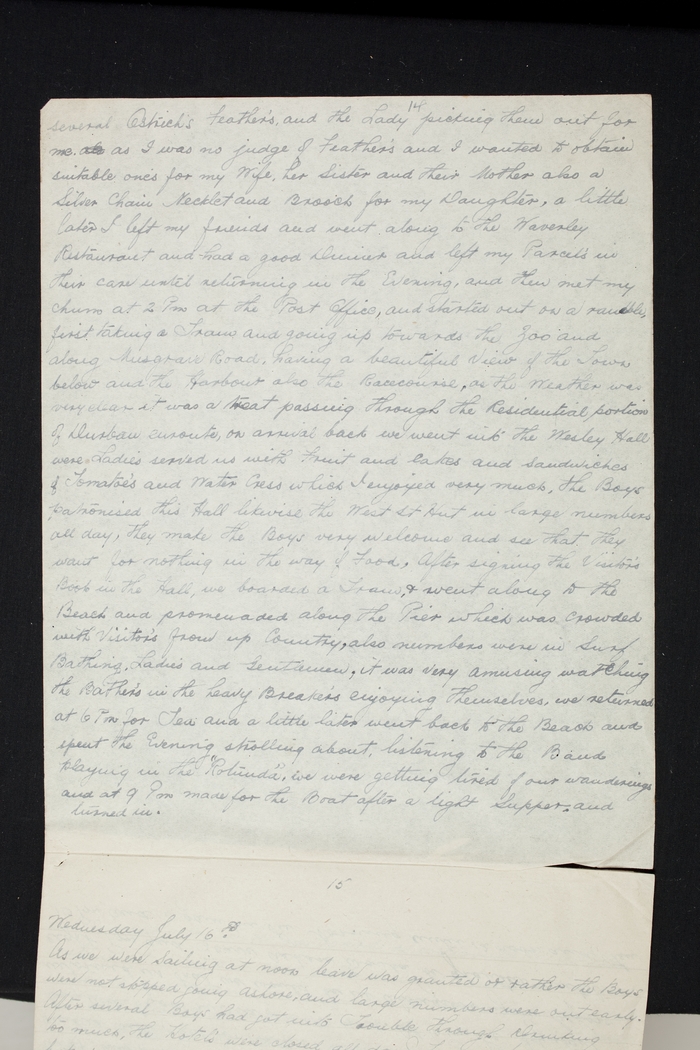 14
several Ostrich's Feather's, and the Lady picking them out for
me. as I was no judge of Feather's and I wanted to obtain
suitable ones for my Wife, her Sister and their Mother also a
Silver Chain Necklet and Brooch for my Daughter, a little
later I left my friends and went along to the Waverley
Restaurant and had a good Dinner and left my Parcels in
their care until returning in the Evening, and then met my
chum at 2 Pm at the Post Office, and started out on a ramble,
first taking a Tram and going up towards the Zoo and
along Musgrave Road, having a beautiful View of the Town
below and the Harbour also the Racecourse, as the Weather was
very clear it was a treat passing through the Residential portion
of Durban enroute, on arrival back we went into the Wesley Hall
were Ladies served us with Fruit and Cakes and Sandwiches
& Tomatoe's and Water Cress which I enjoyed very much, the Boys
patronised this Hall likewise the West St Hut in large numbers
all day, they make the Boys very welcome and see that they
want for nothing in the way of Food, After signing the Visitor's
Book in the Hall, we boarded a Tram, & went along to the
Beach and promenaded along the Pier which was crowded
with Visitor's from up Country, also numbers were in Surf
Bathing, Ladies and Gentlemen, it was very amusing watching
the Bather's in the heavy Breakers enjoying themselves, we returned
at 6 Pm for Tea and a little later went back to the Beach and
spent the Evening strolling about, listening to the Band
playing in the "Rotunda", we were getting tired of our wanderings
and at 9 Pm made for the Boat after a light Supper, and
turned in.
15
Wednesday July 16th
As we were sailing at noon leave was granted or rather the Boys
were not stopped going ashore, and large numbers were out early.
After several Boys had got into Trouble through Drinking
too much, the hotels were closed all